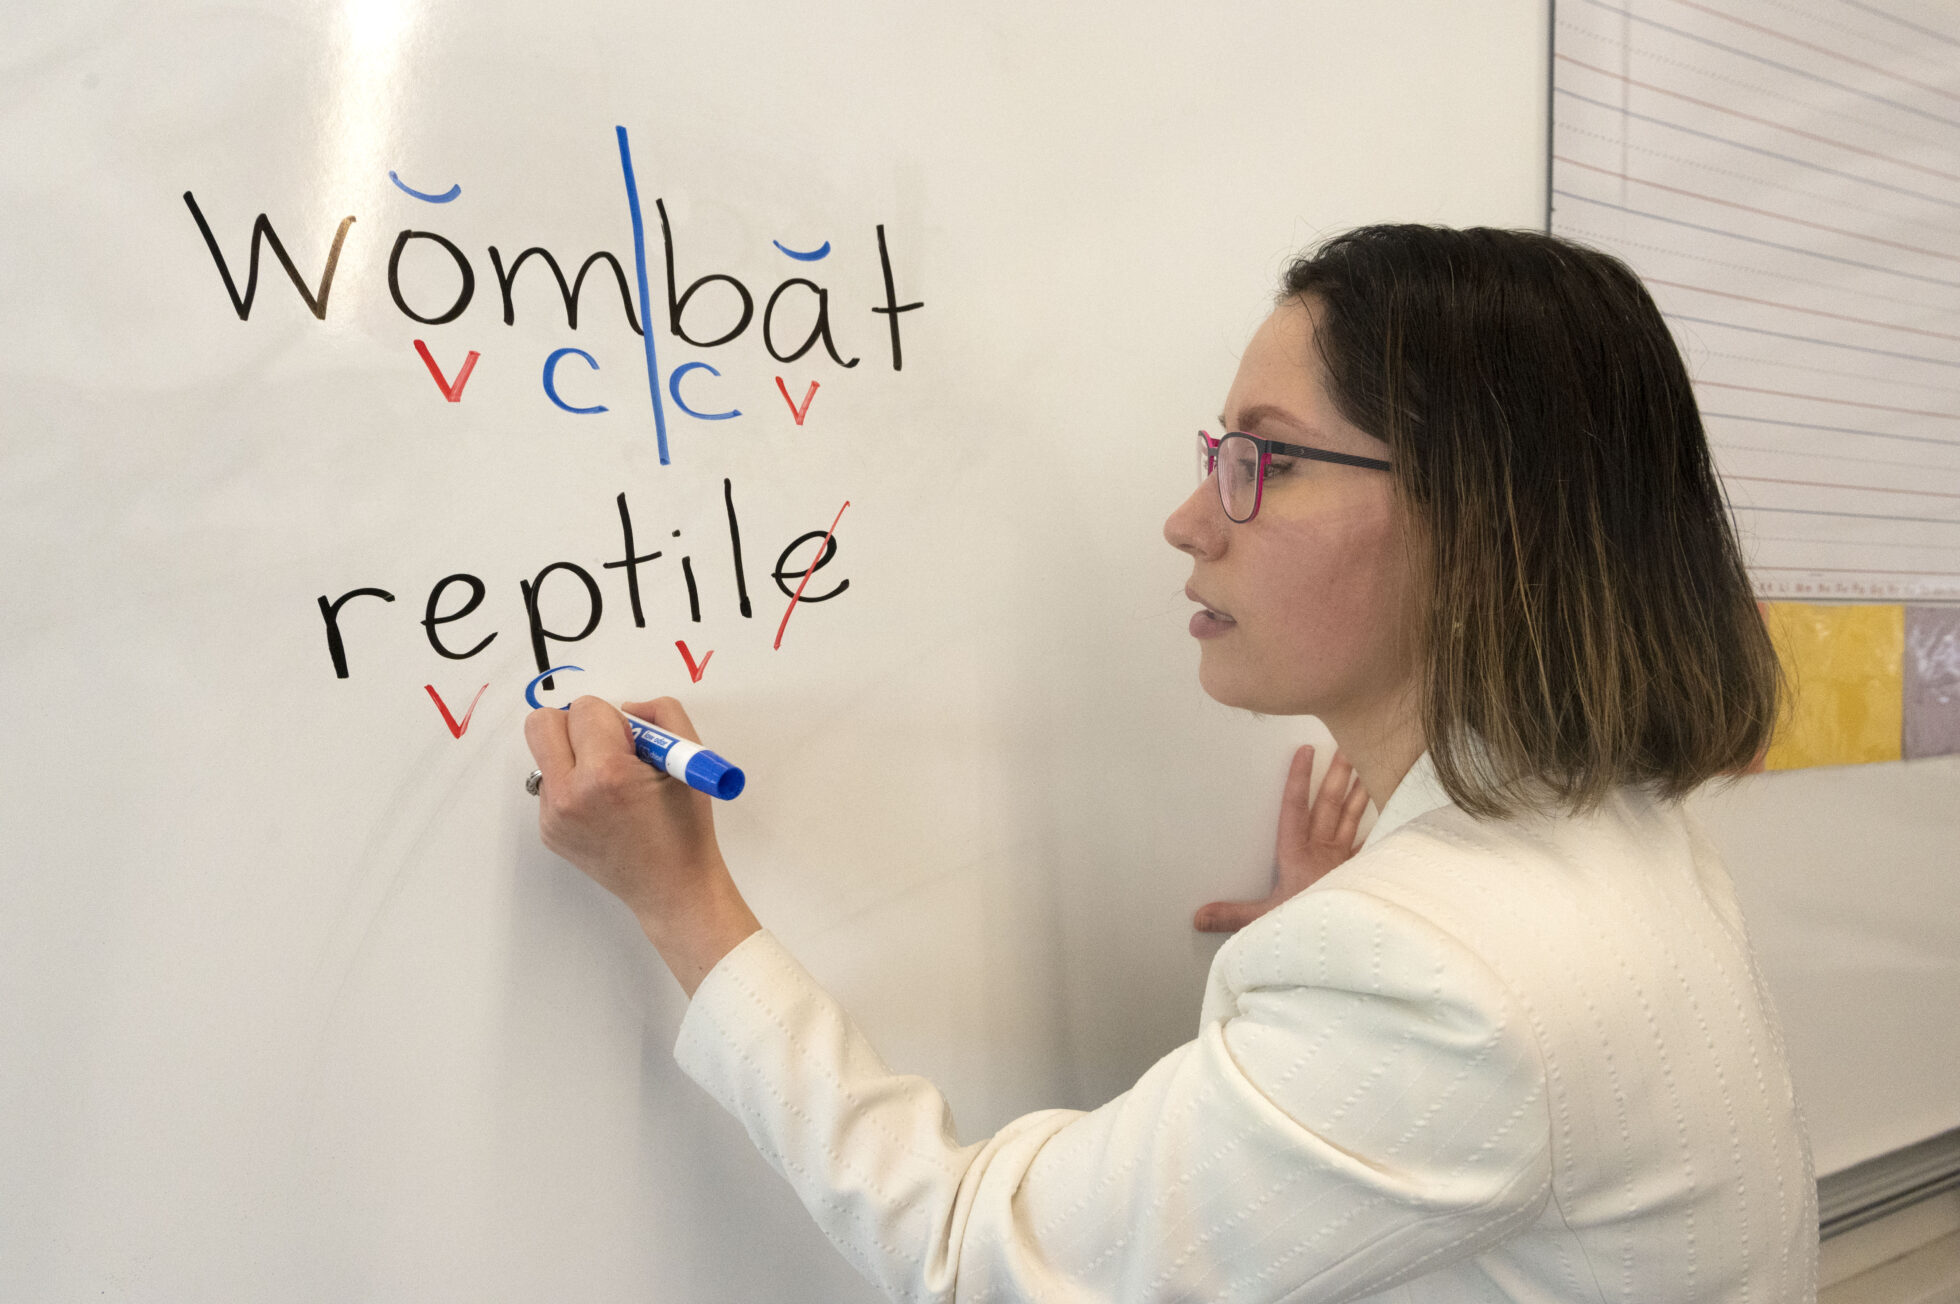 wŏmbăt
v c c v
reptile
v c v